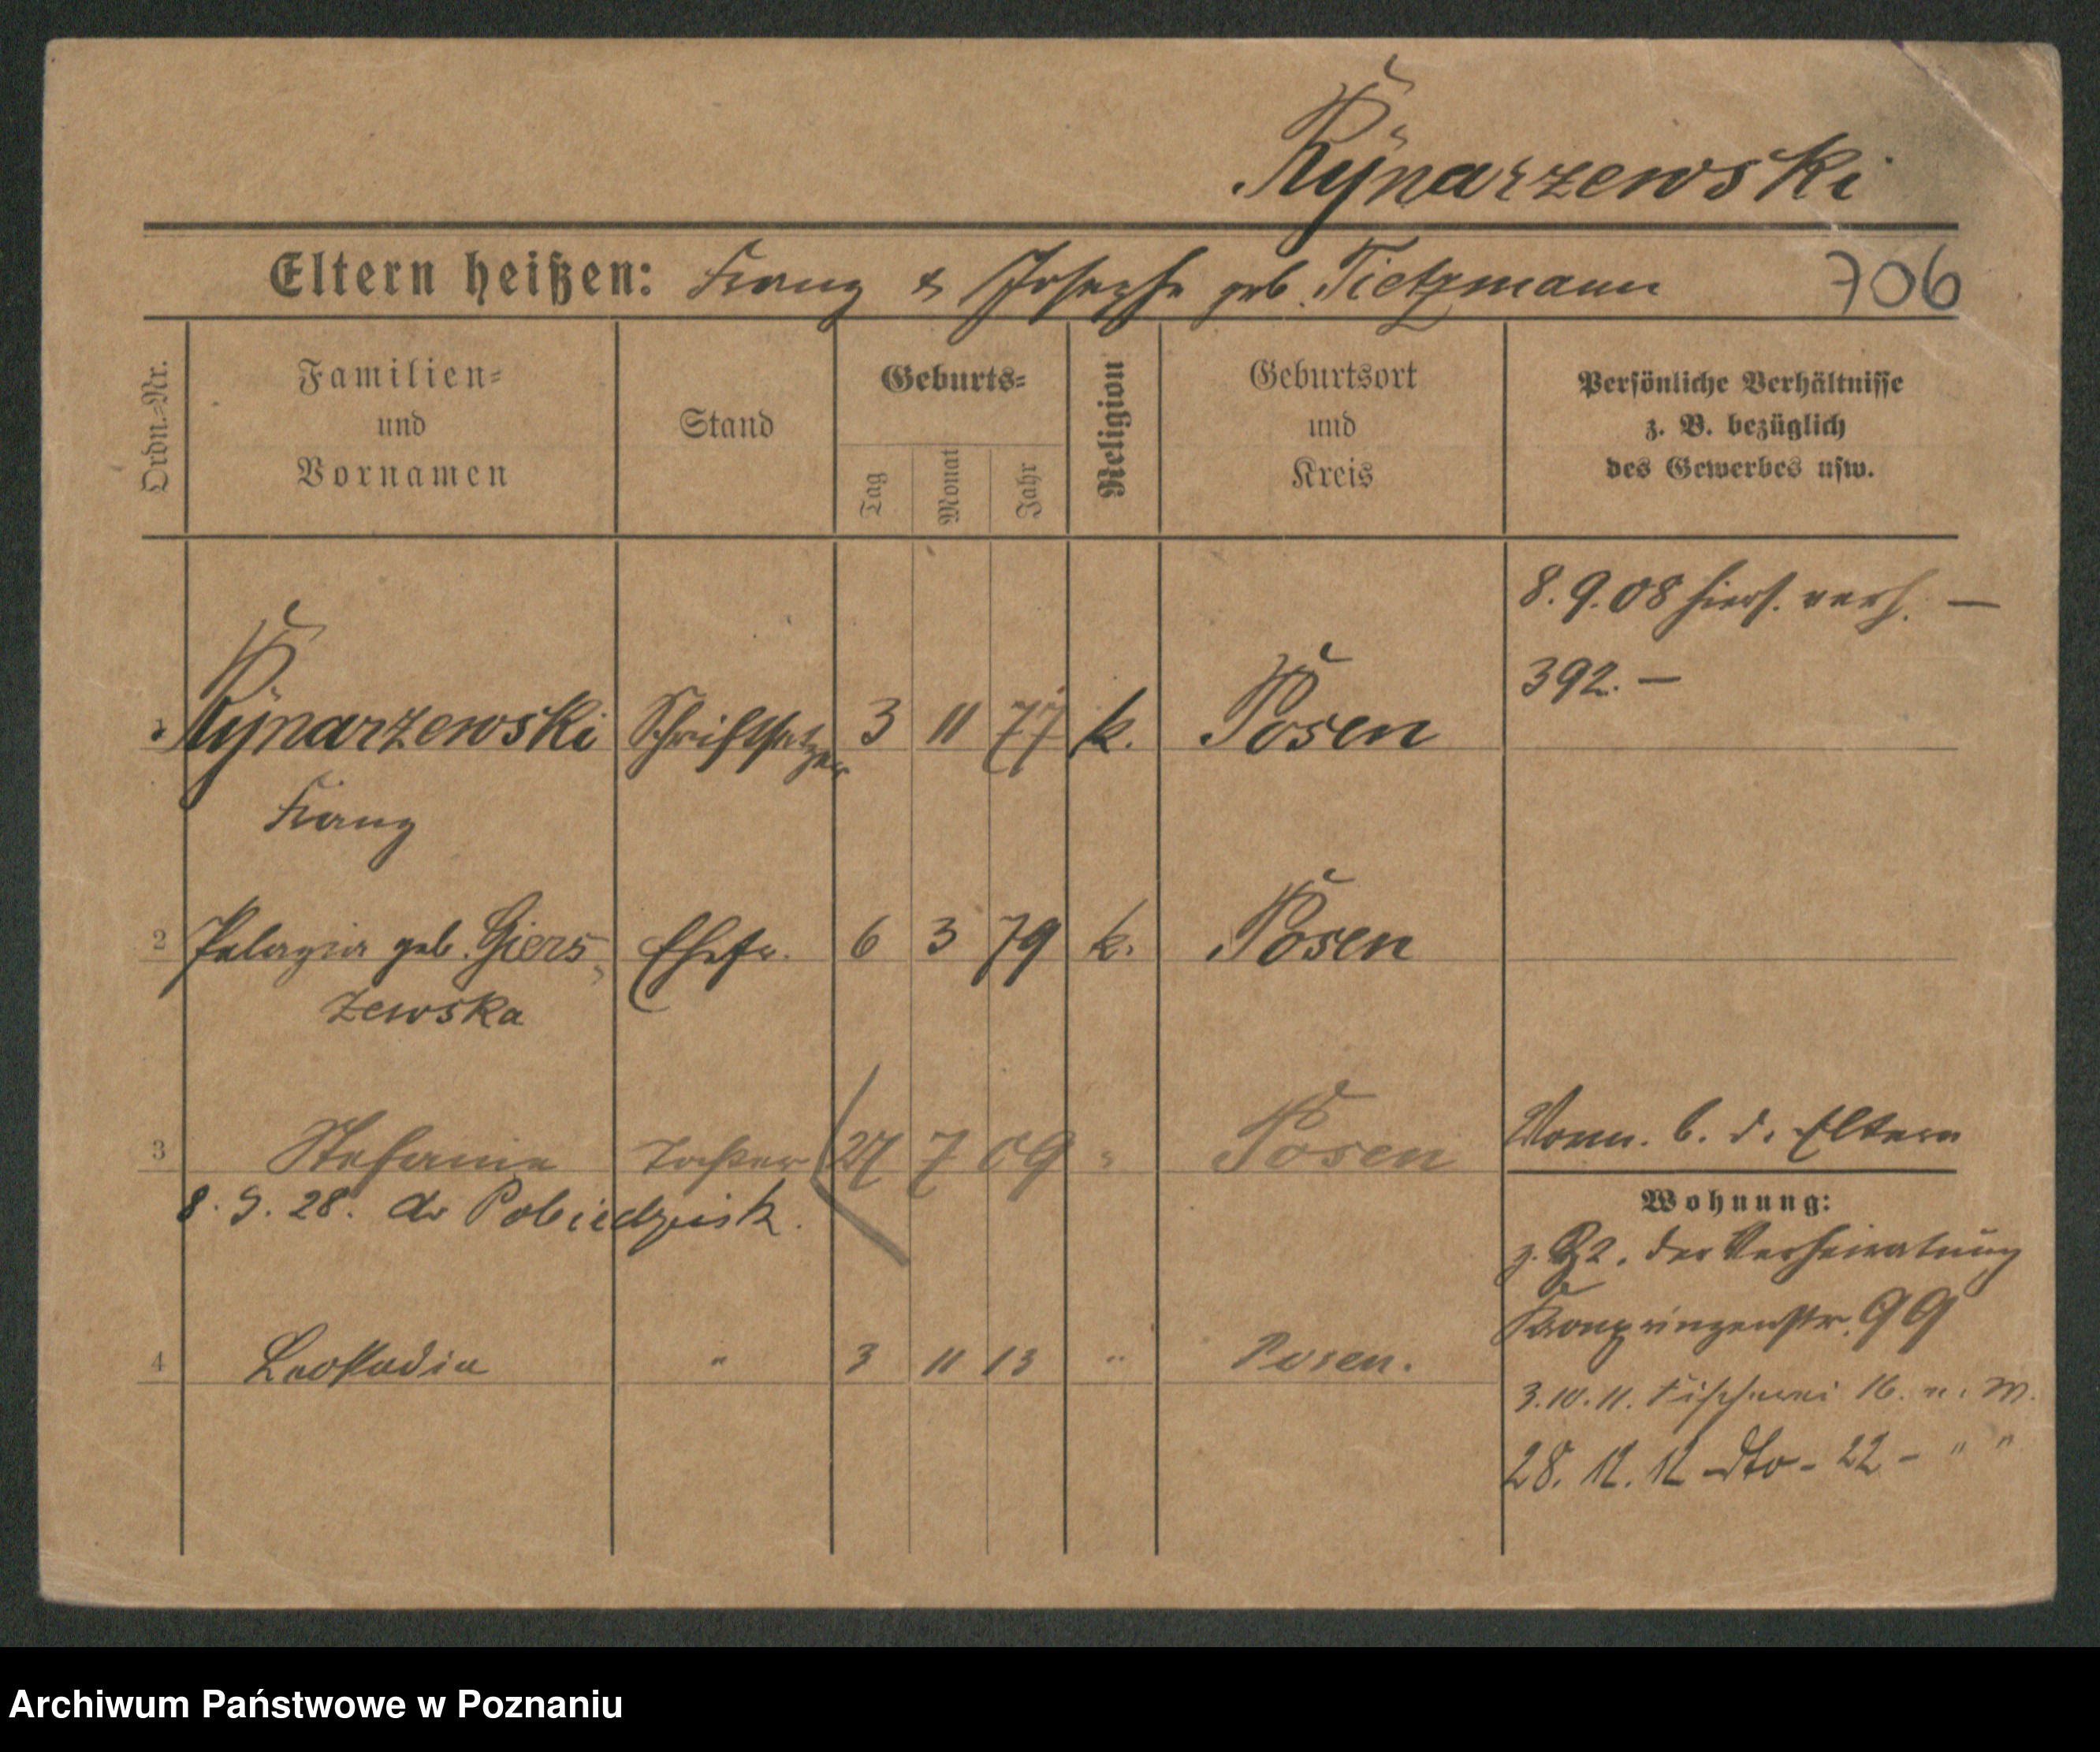 Rynarzewski
Eltern heißen: Franz & Josepha geb. Tietzmann 706
Ordn.-Nr. Familien- und Vornamen Stand Geburts- Tag Monat Jahr Religion Geburtsort und Kreis Persönliche Verhältnisse z. B. bezüglich des Gewerbes usw.
8.9.08 hiers. verh. —
392. —
1 Rynarzewski Schriftsetzer 3 11 77 k. Posen
Franz
2 Pelagia geb. Giers- Ehefr. 6 3 79 k. Posen
zewska
3 Stefania Tochter 27 7 09 " Posen Wonn. b. d. Eltern
8. 9. 28. do Pobiedzisk.
Wohnung:
z. Zt. der Verheiratung
Kronprinzenstr. 99
4 Leokadia " 3 11 13 " Posen.
3.10.11. Fischerei 16. n. W.
28. 12. 12 - dto - 22 - " "
Archiwum Państwowe w Poznaniu